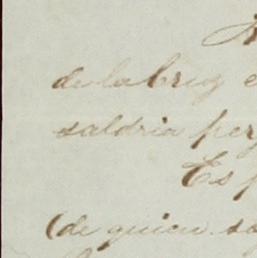 de la brig
saldria per
Es p
(de quien so